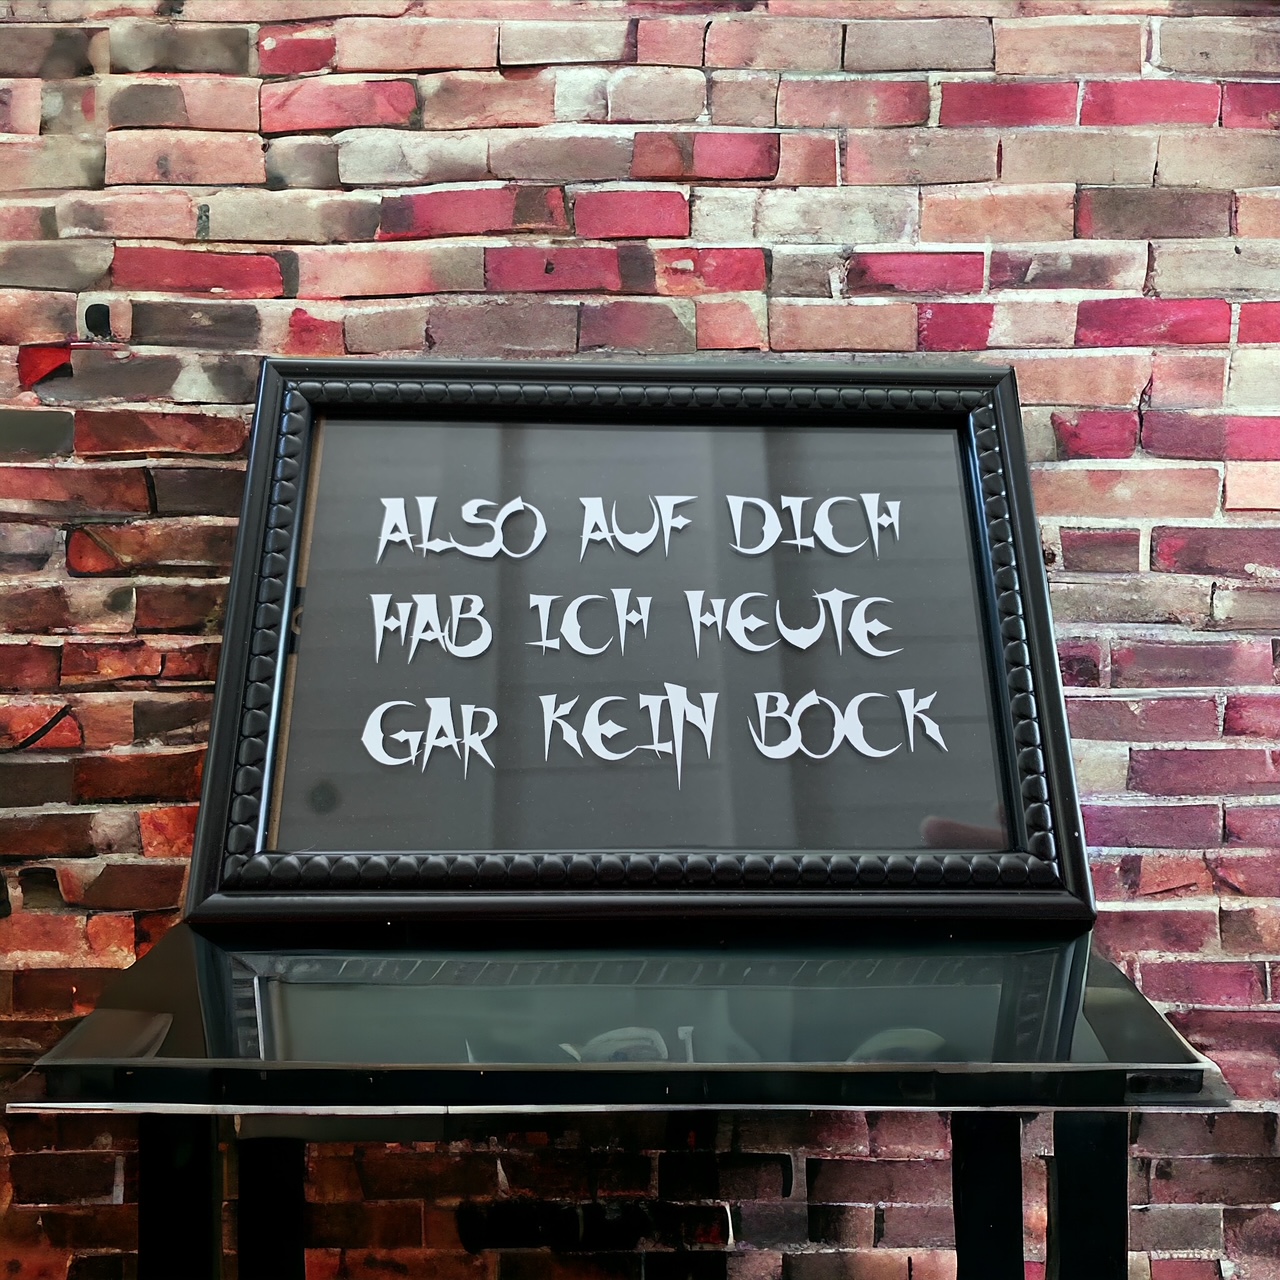 ALSO AUF DICH
HAB ICH HEUTE
GAR KEIN BOCK